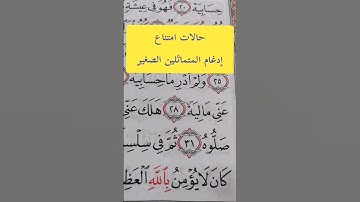 حِسَابِيَهْ ٢٠ فَهُوَ فِي عِيشَةٍ
حالات امتناع
إدغام المتماثلين الصغير
٢٥ وَلَمْ أَدْرِ مَا حِسَابِيَهْ
عَنِّي مَالِيَهْ ٢٨ هَلَكَ عَنِّي
صَلُّوهُ ٣١ ثُمَّ فِي سِلْسِ
كَانَ لَا يُؤْمِنُ بِاللَّهِ الْعَظِ